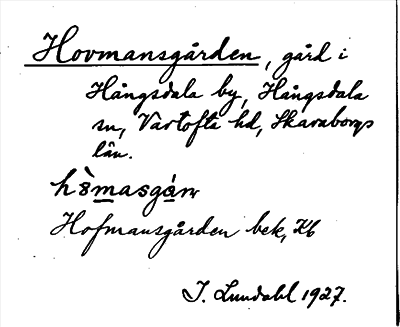 Hovmansgården, gård i
Hångsdala by, Hångsdala
sn, Vartofta hd, Skaraborgs
län.
Hofmansgården bek, Kb
I. Lundahl 1927.